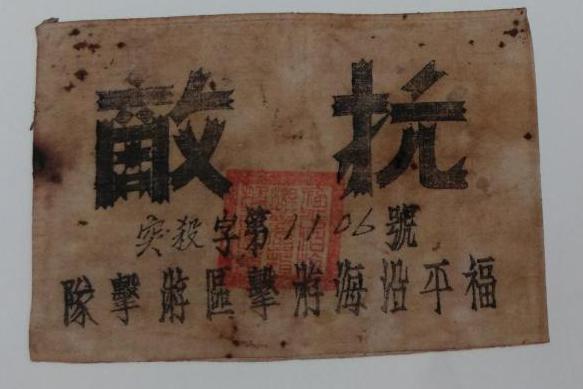 抗敵
突殺字第1106號
福平沿海游擊區游擊隊